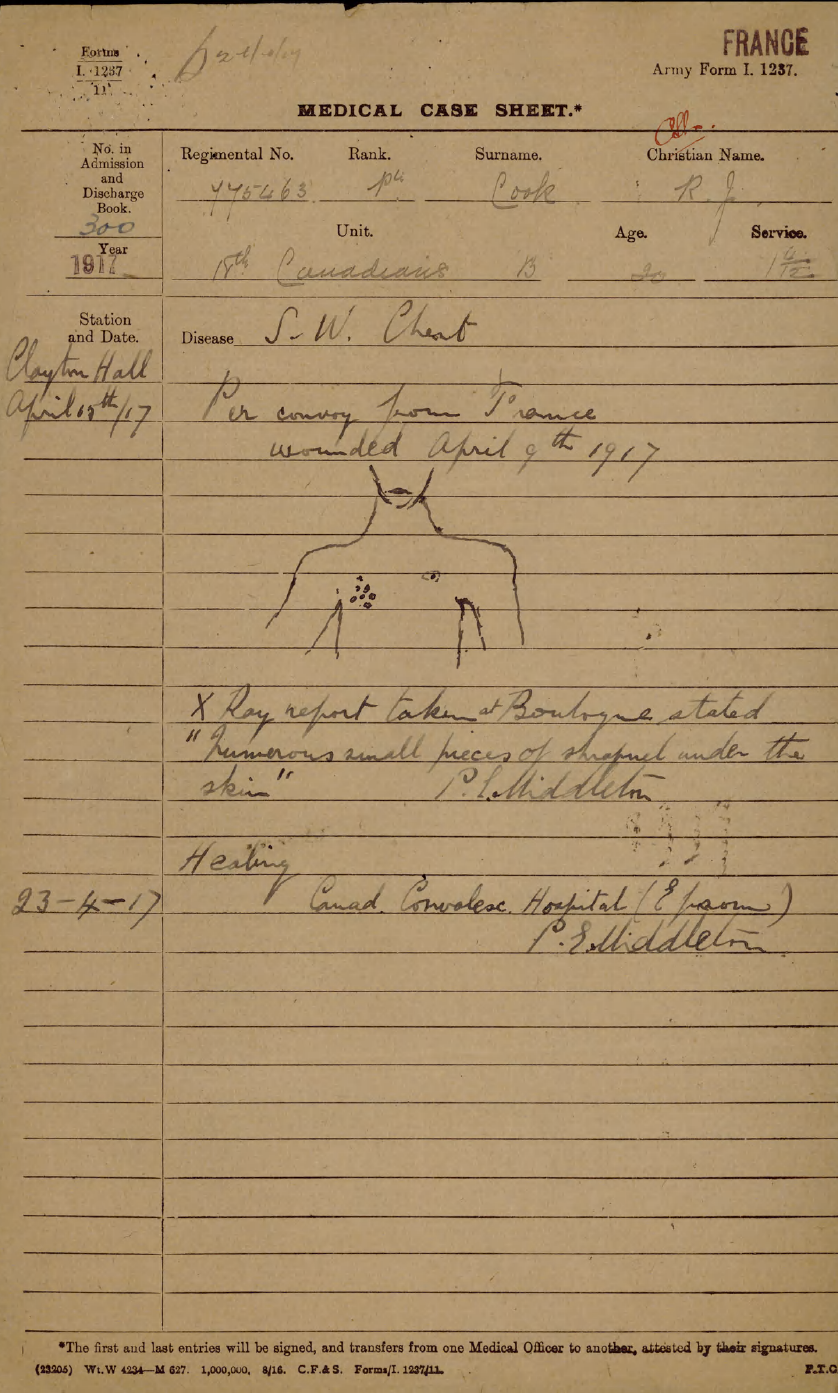 Forms
I. 1237
11
FRANCE
Army Form I. 1237.
MEDICAL CASE SHEET.*
No. in
Admission
and
Discharge
Book.
300
Year
1917
Regimental No. Rank. Surname. Christian Name.
775463 Pte Cook R. J.
Unit. Age. Service.
18th Canadians B 20 1
Station
and Date.
Disease S. W. Chest
Clayton Hall
April /17
Per convoy from France
wounded April 9th 1917
X Ray report taken at Boulogne stated
"numerous small pieces of shrapnel under the
skin" P. E. Middleton
Healing
23-4-17 Canad. Convalesc. Hospital (Epsom)
P. E. Middleton
*The first and last entries will be signed, and transfers from one Medical Officer to another, attested by their signatures.
(23205) Wt. W 4234—M 627. 1,000,000. 8/16. C.F.&S. Forms/I. 1237/11.
P.T.O